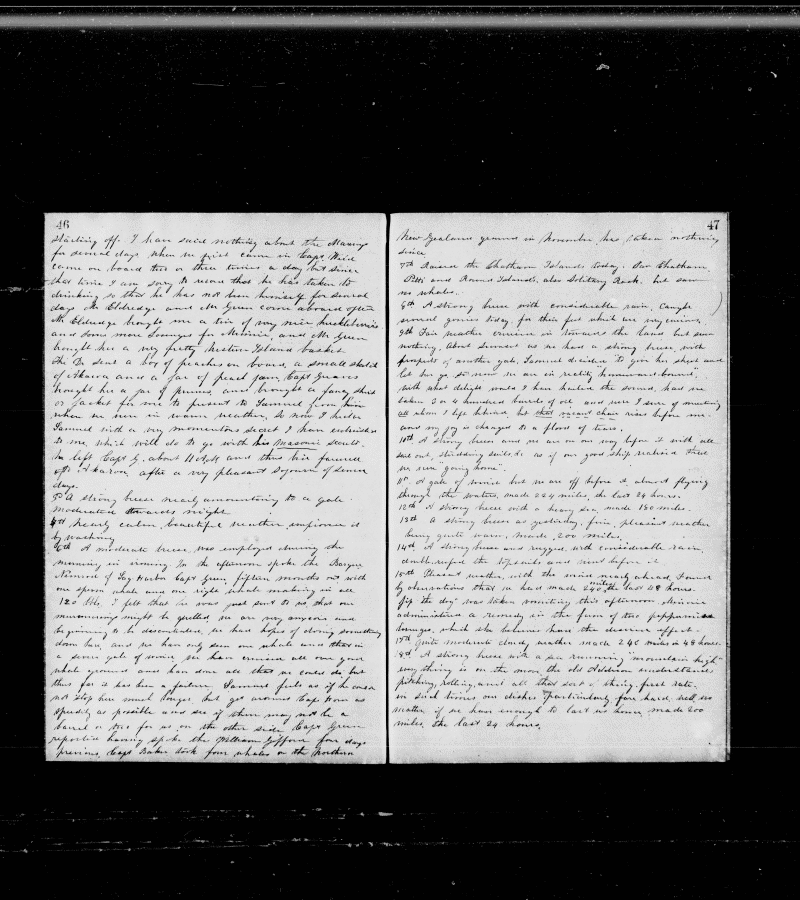 46
starting off. I have said nothing about the Mary
for several days when we first came in Capt
came on board two or three times a day but since
that time I am sorry to record that he has taken to
drinking so that he has not been himself for several
days Mr Eldredge and Mr Green come aboard often
Mr Eldredge brought me a tin of very nice huckleberries
and some more for Minnie, and Mr Green
bought her a very pretty Island basket
the Dr sent a box of peaches on board, a small sketch
of Akaroa and a jar of peach jam, Capt Greaves
bought her a jar of prunes and brought a fancy
or jacket for me to present to Samuel from him
when we were in warm weather, So now I have
Samuel with a very momentous secret I have entrusted
to me, which will do to go with his Masonic secret.
We left Capt G. about 11 A.M. and thus bid farewell
to Akaroa, after a very pleasant sojourn of seven
days.
5th A strong breeze nearly amounting to a gale.
moderated towards night
4th Nearly calm beautiful weather improved it
by washing
6th A moderate breeze, was employed during the
morning in ironing. In the afternoon spoke the Barque
Nimrod of Sag Harbor Capt Green, fifteen months out with
one sperm whale and one right whale making in all
120 bbls, I felt that he was just sent to us, that our
murmuring might be quelled we are very anxious and
beginning to be discontented, we had hopes of doing something
down here, and we have only seen one whale and that in
a severe gale of wind we have cruised all over your
whale ground and have done all that we could do, but
thus far it has been a failure. Samuel feels as if he can
not stop here much longer but get around Cape Horn as
speedily as possible and see if there may not be a
barrel or two for us on the other side. Capt Green
reported having spoke the William Gifford four days
previous, Capt Baker took four whales on the Northern
47
New Zealand ground in November has taken nothing
since
7th Raised the Chatham Islands today. Saw Chatham,
Pitt and Round Islands, also Solitary Rock. but saw
no whales.
8th A strong breeze with considerable rain, Caught
several gonies today, for their feet which are very curious,
9th Fair weather cruised in towards the land but saw
nothing, About Sunset as we had a strong breeze, with
prospect of another gale, Samuel decided "to give her sheet and
let her go" so now we are in reality "homeward bound",
with what delight would I have hailed the sound, had we
taken 3 or 4 hundred barrels of oil and were I sure of meeting
all whom I left behind, but that vacant chair rises before me
and my joy is changed to a flood of tears.
10th A strong breeze and we are on our way before it with all
sail out, studding sails, &c as if our good ship realised that
we were "going home".
11th A gale of wind but we are off before it, almost flying
through the waters, made 224 miles, the last 24 hours.
12th A strong breeze with a heavy sea, made 180 miles.
13th A strong breeze as yesterday, fair, pleasant weather
being quite warm, made 200 miles.
14th A strong breeze and rugged, with considerable rain,
double reefed the topsails and went before it
15th Pleasant weather, with the wind nearly ahead, found
by observations that we had made 240 miles the last 48 hours.
Jip the dog was taken vomiting this afternoon, Minnie
administered a remedy in the form of two peppermint
lozenges, which she believes had the desired effect.
17th Quite moderate and, weather made 246 miles in 48 hours.
18th A strong breeze with a sea running "mountain high"
every thing is on the move, the old Addison understands
pitching, rolling, and all that sort of thing first rate,
in such times our dishes particularly fare hard, well no
matter if we have enough to last us home, made 200
miles, the last 24 hours,